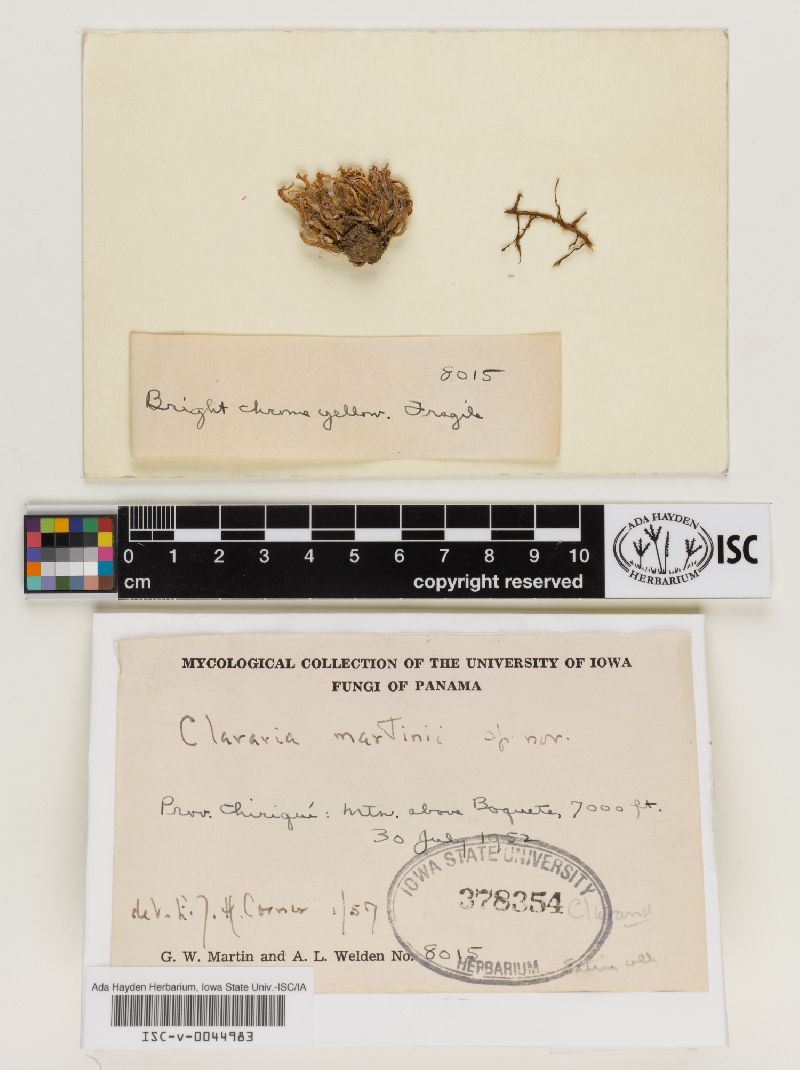 8015
Bright chrome yellow. Fragile
0 1 2 3 4 5 6 7 8 9 10
cm
copyright reserved
ADA HAYDEN
HERBARIUM
ISC
MYCOLOGICAL COLLECTION OF THE UNIVERSITY OF IOWA
FUNGI OF PANAMA
Clavaria martinii sp. nov.
Prov. Chiriquí: Mtn. above Boquete, 7000 ft.
30 July 1952
IOWA STATE UNIVERSITY
378354
HERBARIUM
det. E. J. H. Corner 1/57
G. W. Martin and A. L. Welden No. 8015
coll.
Ada Hayden Herbarium, Iowa State Univ.-ISC/IA
ISC-v-0044983